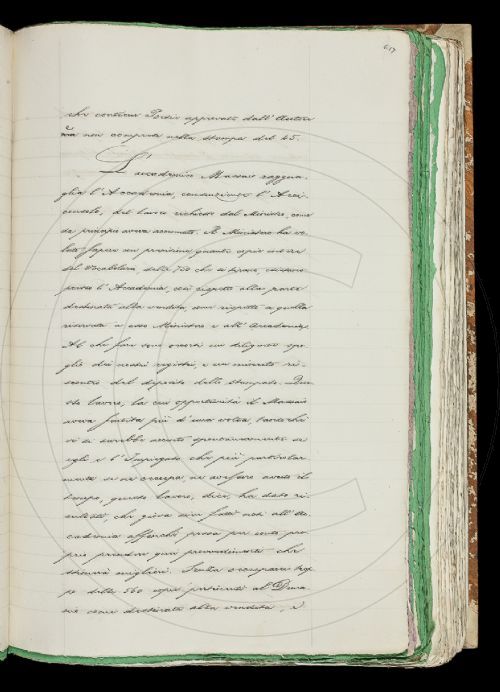 617
che contiene Poesie approvate dall'Autore
ma non comprese nella stampa del 45.
L'accademico Massai raggua-
glia l'Accademia, consenziente l'Arci-
consolo, del lavoro richiesto dal Ministro, come
da principio aveva accennato. Il Ministero ha vo-
luto sapere con precisione quante copie intere
del Vocabolario, delle 750 che si tirano,
presso l'Accademia, così rispetto alla parte
destinata alla vendita, come rispetto a quella
riservata a esso Ministero e all'Accademia.
Al che fare era d'uopo un diligente spo-
glio dei nostri registri, e un minuto ri-
scontro del deposito delle stampe. Que-
sto lavoro, la cui opportunità il Massai
aveva sentita più d'una volta,
vi si sarebbe accinto spontaneamente se
egli e l'Impiegato che più particolar-
mente se ne occupa, ne avesser avuto il
tempo, questo lavoro, dico, ha dato ri-
sultati, che giova sien fatti noti all'Ac-
cademia affinchè possa per conto pro-
prio prendere quei provvedimenti che
stimerà migliori. Senza occuparci trop-
po delle 560 copie
come destinata alla vendita, e